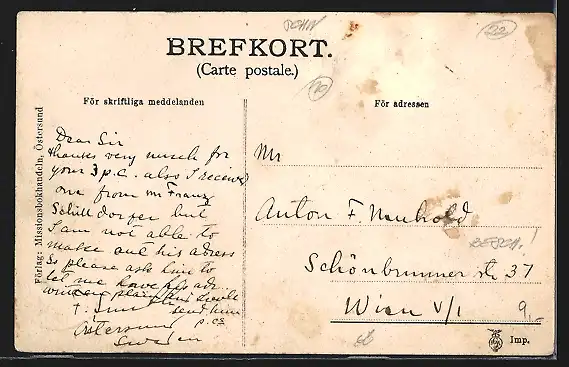 BREFKORT.
(Carte postale.)
För skriftliga meddelanden
För adressen
Förlag: Missionsbokhandeln, Östersund
Dear Sir
thanks very much for
your 3 p.c. also I received
one from mr Franz
but
I am not able to
make out his adress
So please ask him to
let me have his adr.
plain
send him
p.cs
Östersund
Sweden
Mr
Anton F. Neuhold
Schönbrunner str 37
Wien V/1
9.-
22
Imp.